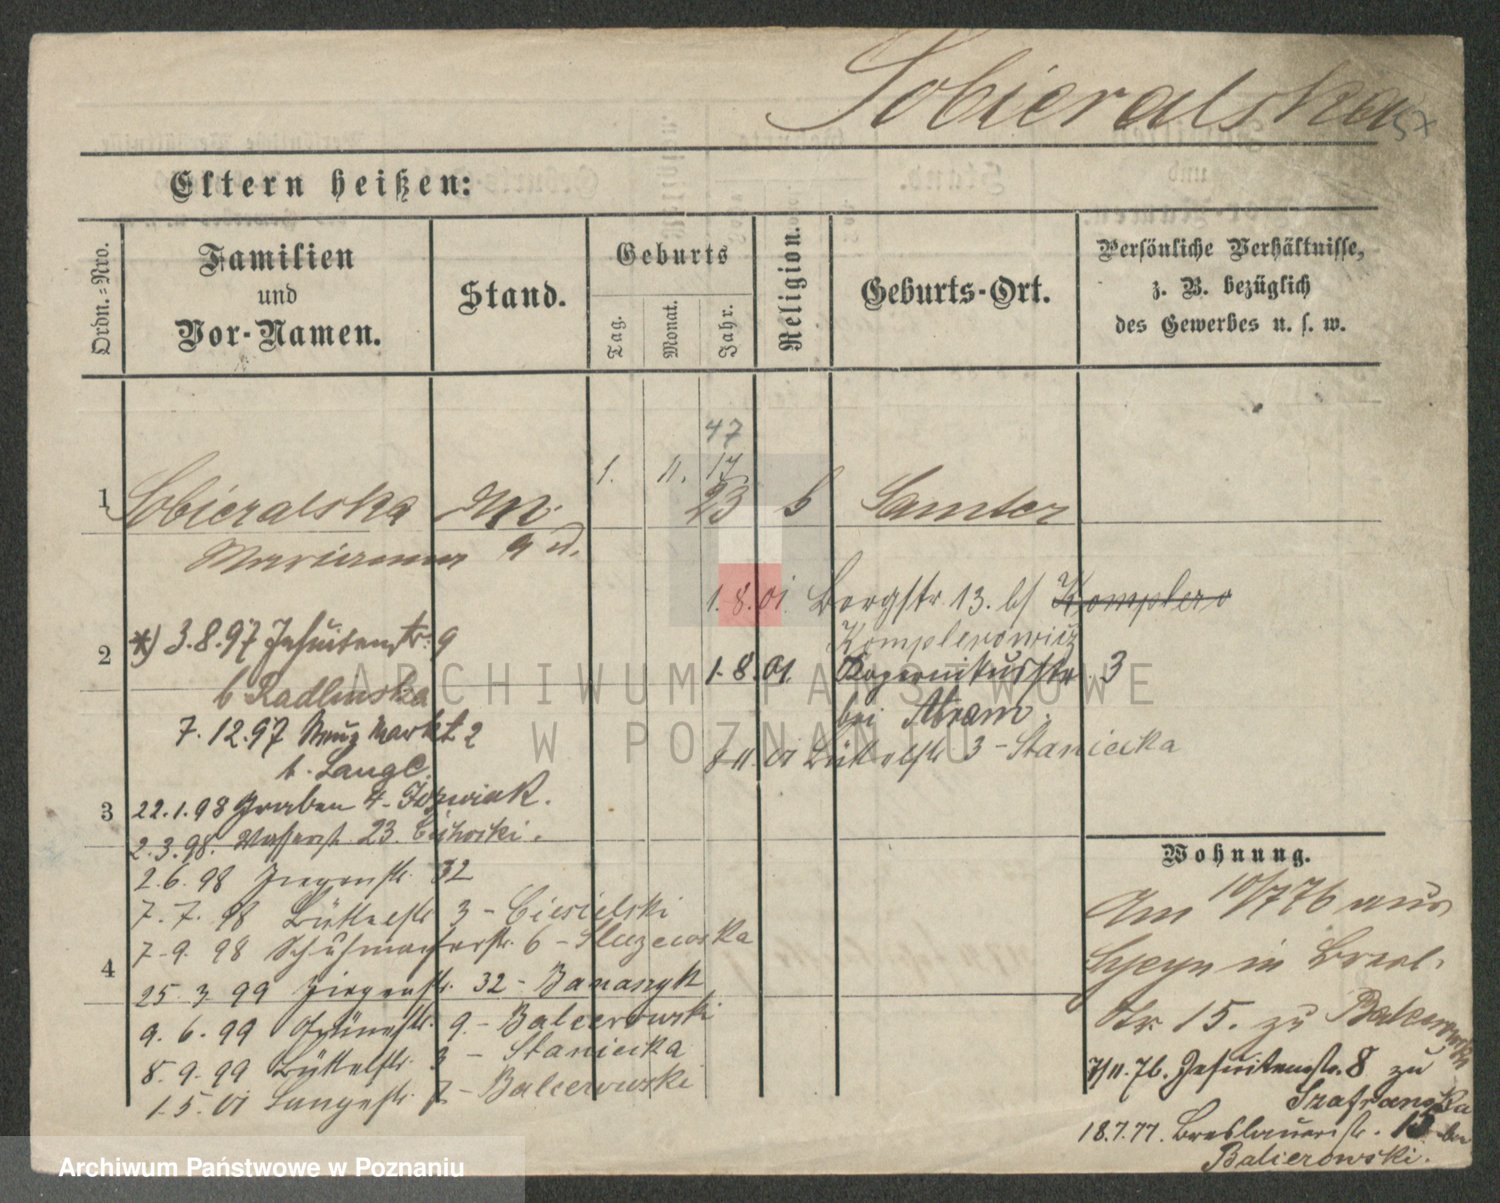 Sobieralska 57
Eltern heißen:
Ordn.-Nro.
Familien
und
Vor-Namen.
Stand.
Geburts
Tag.
Monat.
Jahr.
Religion.
Geburts-Ort.
Persönliche Verhältnisse,
z. B. bezüglich
des Gewerbes u. s. w.
47
1 Sobieralska 1. 11. 17 Samter
23
Marianna
1.8.01 Bergstr. 13. b/ Komplero
Komplerowicz
2 *) 3.8.97 Jesuitenstr. 9
b Radlinska
1.8.01. Kopernikusstr. 3
bei Abram.
7.12.97 Neuer Markt 2
b. Lange.
01 Büttelstr 3 - Staniecka
3 22.1.98 Graben 4 - Jozwiak.
2.3.98. Wasserstr. 23. Cichocki.
2.6.98 Ziegenstr. 32
7.7.98 Büttelstr 3 - Ciesielski
7.9.98 Schuhmacherstr. 6 - Sluzewska
4 25.3.99 Ziegenstr. 32 - Banaszyk
9.6.99 Grünestr. 9 - Balcerowski
8.9.99 Büttelstr. 3 - Staniecka
1.5.01 Langestr. 7 - Balcerowski
Wohnung.
Am 10/7 76 aus
in Bresl.
Str 15. zu Balcerowski
7/11.76. Jesuitenstr. 8 zu
Szafranska
18.7.77. Breslauerstr. 15 bei
Balcerowski.
ARCHIWUM PAŃSTWOWE
W POZNANIU
Archiwum Państwowe w Poznaniu